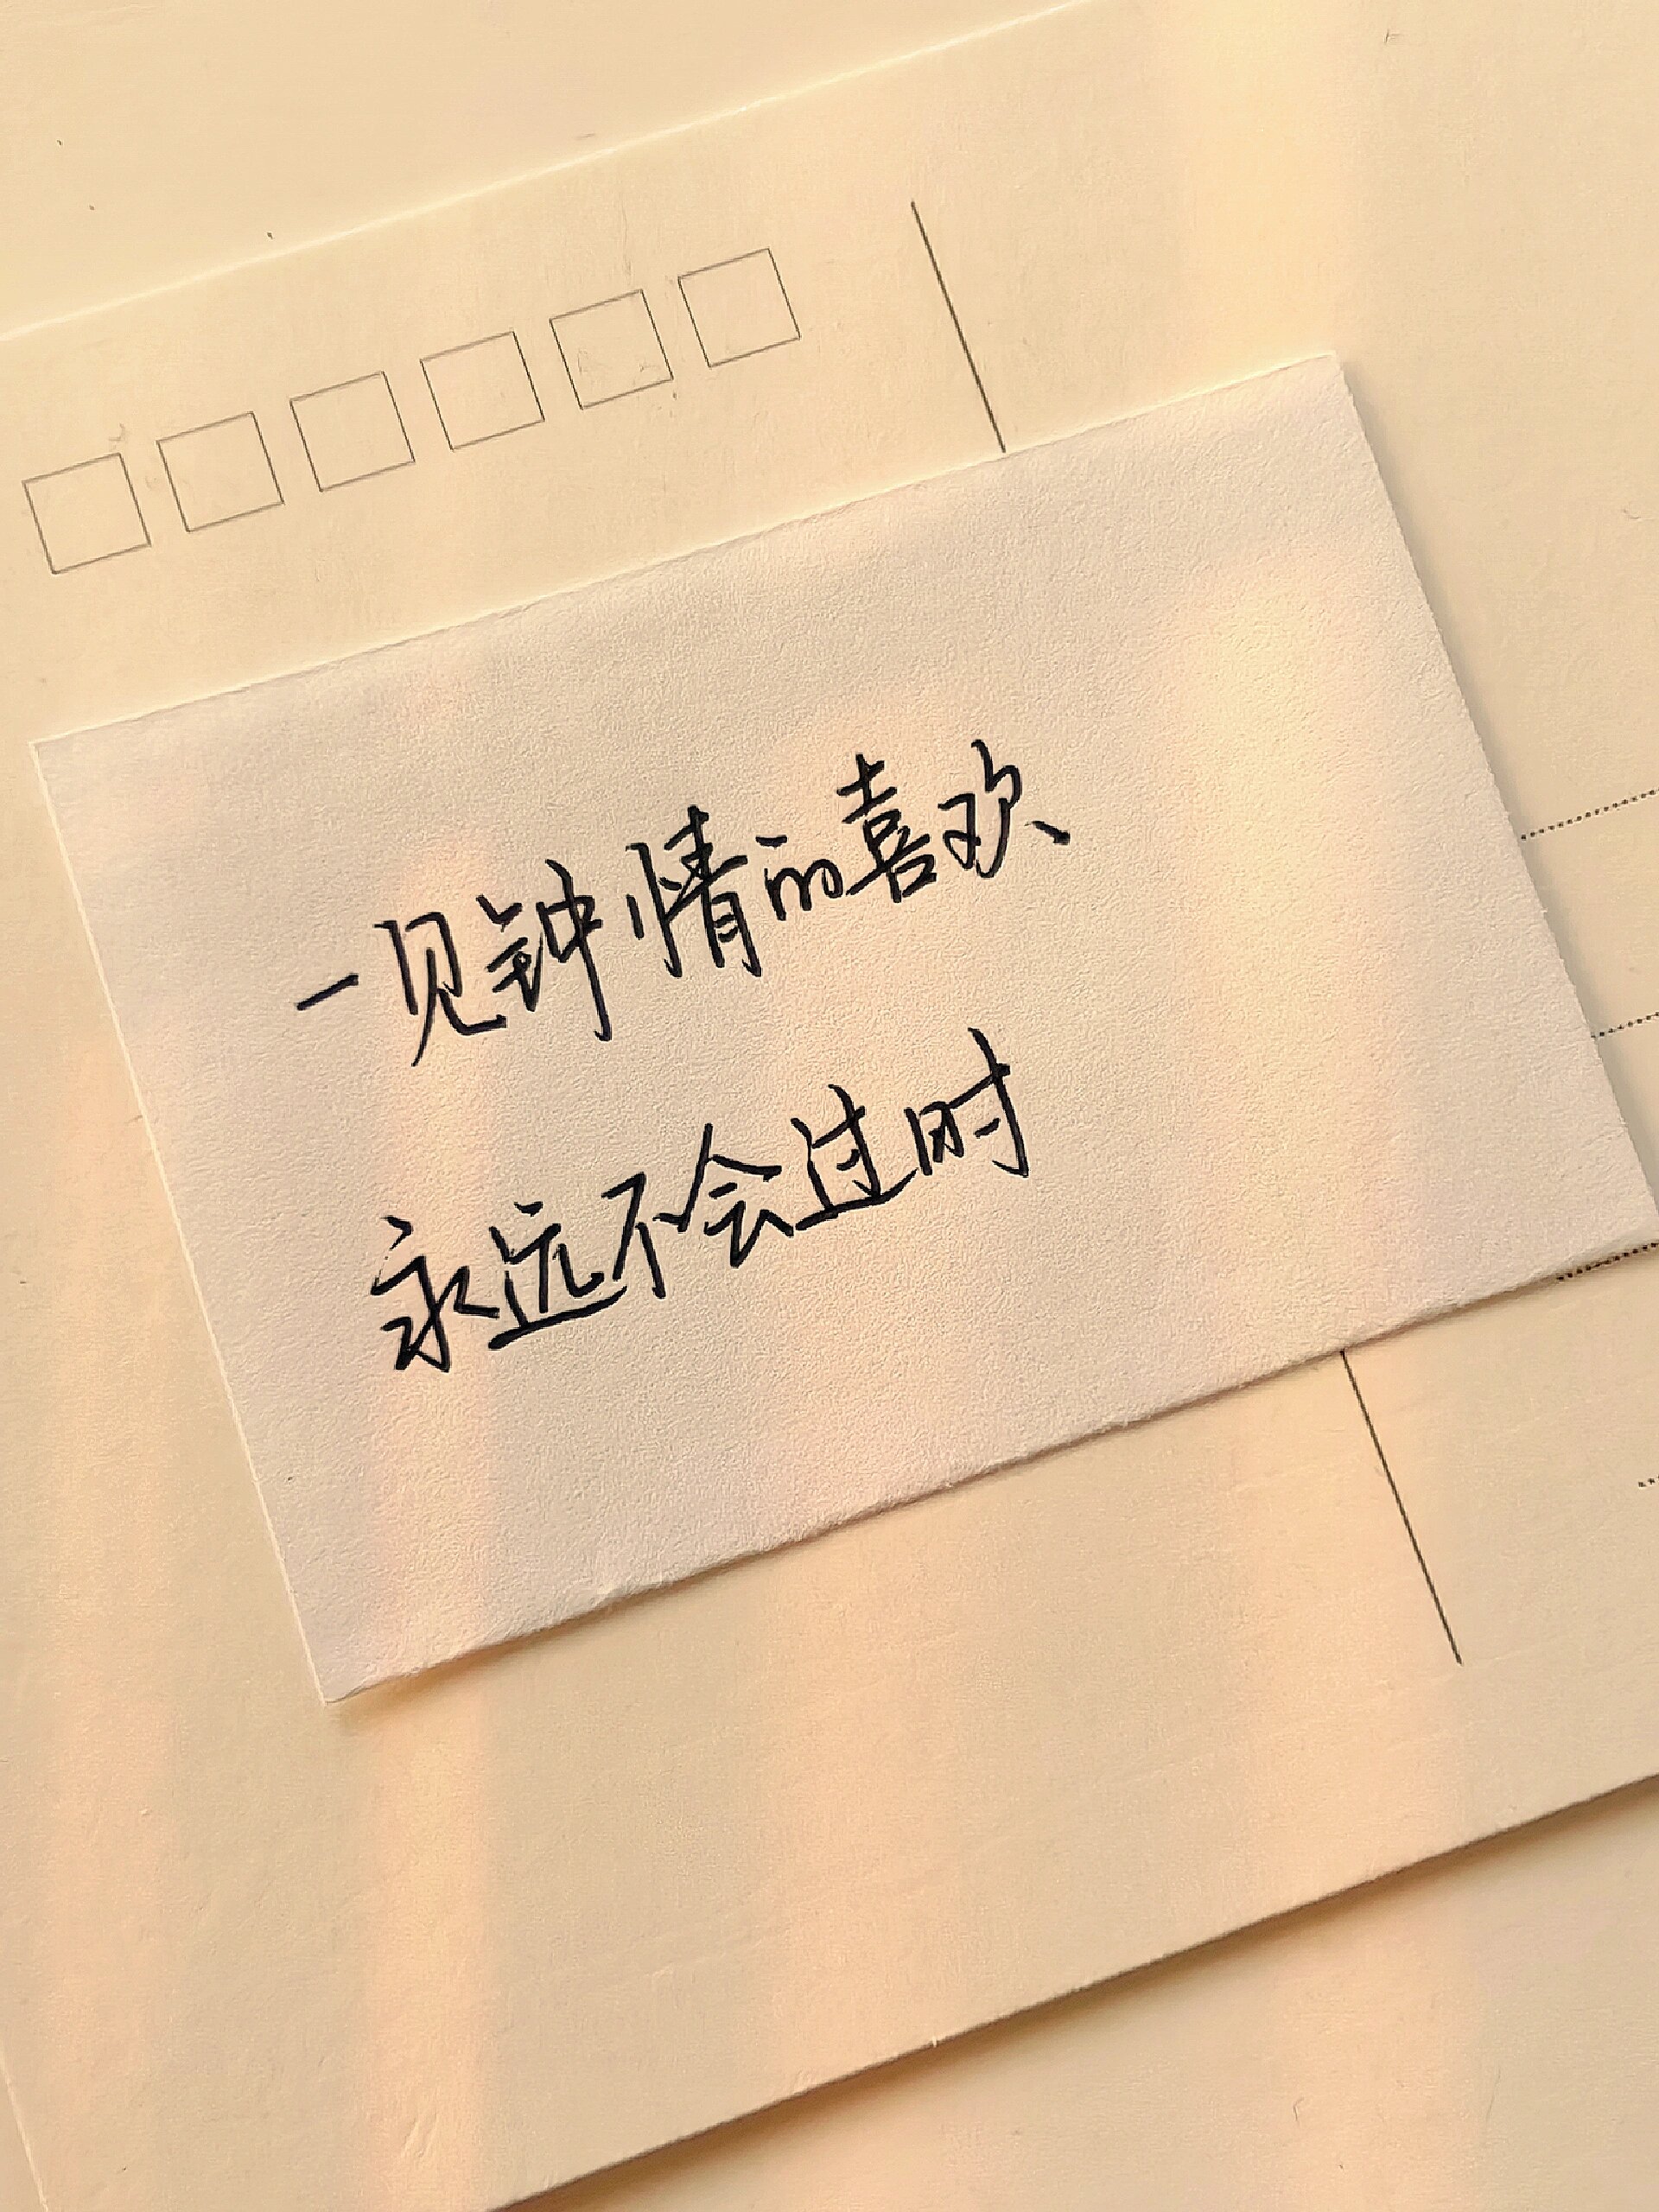 一见钟情的喜欢
永远不会过时